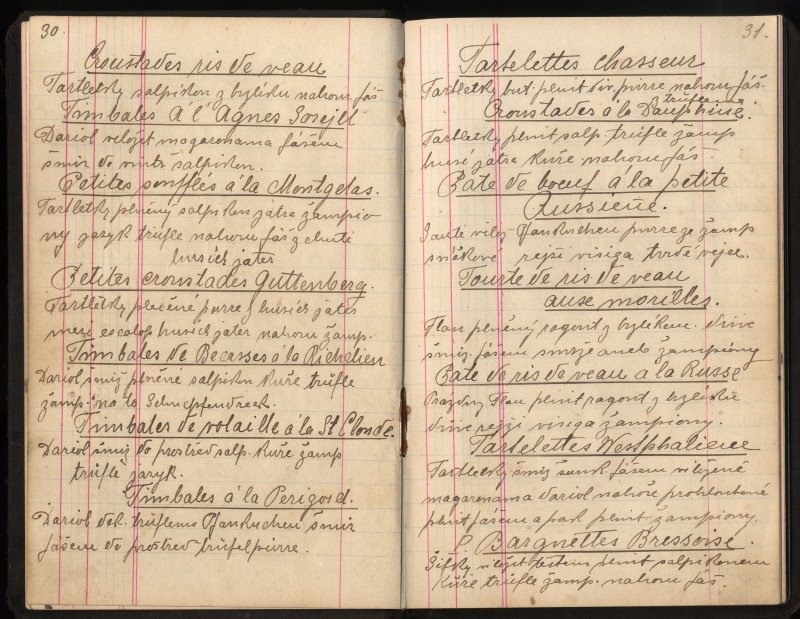 30.
Croustades ris de veau
Tartletky salpikon z brzliku nahoru fáš.
Timbales á l'Agnes Sorejll
Dariol vyložit magaronama fášem
šmir do vnitř salpikon.
Petites soufflés á la Montgelas.
Tartletky plněný salpikon játra žampio
ny jazyk trüfle nahoru fáš žlutí
husích jater
Petites croustades Guttenberg.
Tartletky plněné purre z husích jater
mezi escalop husích jater nahoru žamp.
Timbales de Becasses á la Richelieu
Dariol šmir plněné salpikon kuře trüfle
žamp. na to Schnepfendreck.
Timbales de volaille á la St Cloude.
Dariol šmir do prostřed salp. kuře žamp
trüfle jazyk.
Timbales á la Perigord.
Dariol dek. trüflema Pfankuchen šmir
fášem do prostřed trüfelpurre.
31.
Tartelettes chasseur
Tartletky but. plnit div. purre nahoru fáš.
trüflema
Croustades á la Dauphine.
Tartletky plnit salp. trüfle žamp
husí játra kuře nahoru fáš.
Pate de boeuf á la petite
Russiene.
Saute vylož Pfankuchen purre ze žamp
svíčkové rejži visiga tvrdé vejce.
Tourte de ris de veau
ause morilles.
Flan plněný ragout z brzlikem. dříve
šmir fášem smrže anebo žampiony
Pate de ris de veau a la Russe
Prazdny Flan plnit ragout z brzliku
dříve rejži visiga žampiony.
Tartelettes Westphaliene
Tartletky šmir šunk. fášem vyložené
magaronama dariol nahoře
plnit fášem a pak plnit žampiony.
P. Barquettes Bressoise.
Šifky vyložit těstem plnit salpikonem
Kuře trüfle žamp. nahoru fáš.